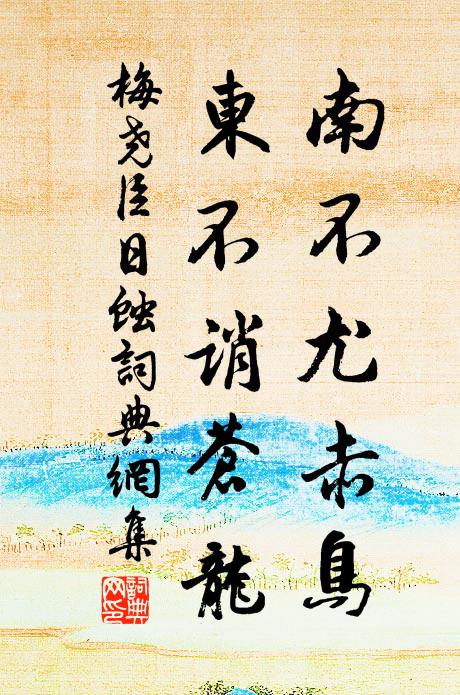 南不尤赤鳥
東不誚蒼龍
梅尧臣日蝕詞典網集